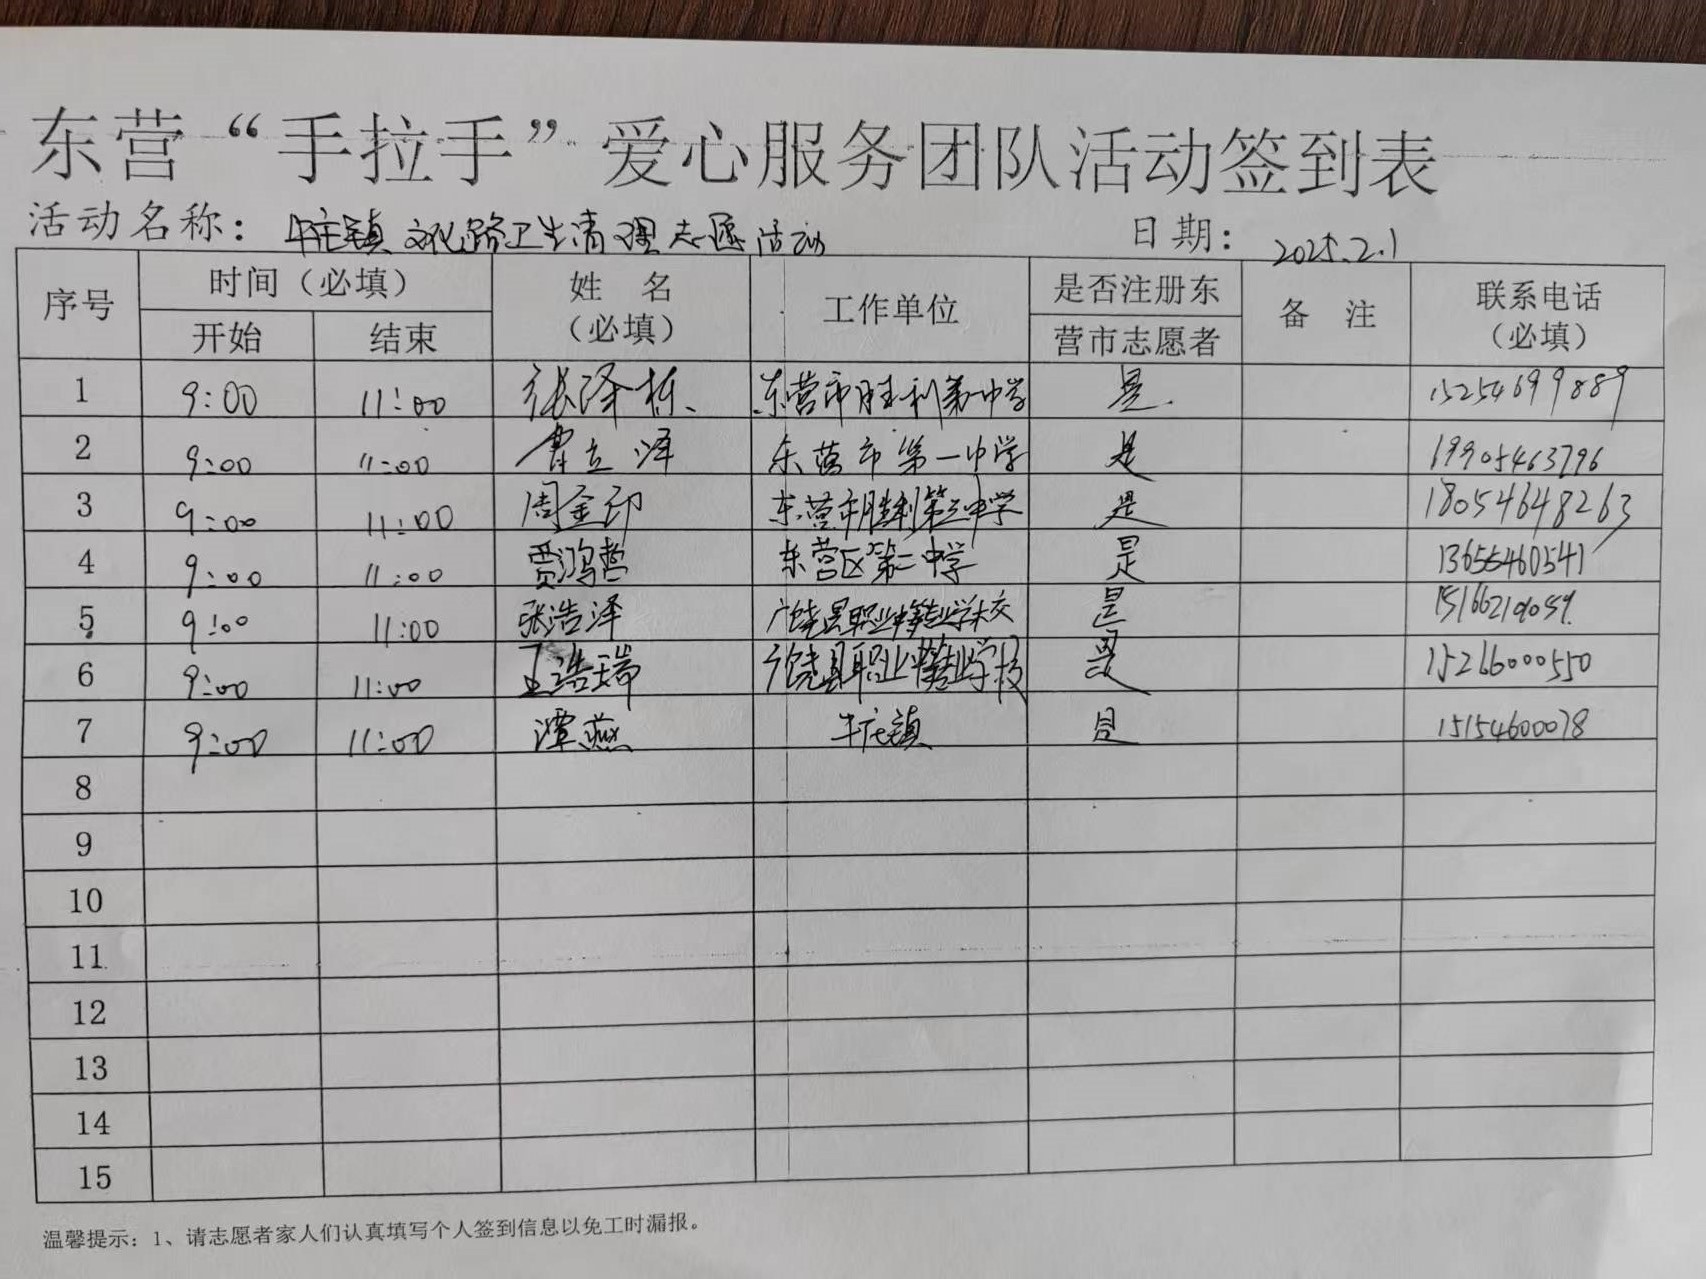 东营“手拉手”爱心服务团队活动签到表
活动名称：牛庄镇文化路卫生清理志愿活动 日期：2025.2.1
序号 时间（必填） 开始 结束 姓名（必填） 工作单位 是否注册东营市志愿者 备注 联系电话（必填）
1 9:00 11:00 张泽栋 东营市胜利第一中学 是 15254699889
2 9:00 11:00 曹立泽 东营市第一中学 是 19905463796
3 9:00 11:00 周金印 东营市胜利第三中学 是 18054648263
4 9:00 11:00 贾鸿哲 东营区第二中学 是 13655460541
5 9:00 11:00 张浩泽 广饶县职业中等专业学校 是
6 9:00 11:00 王浩瑞 广饶县职业中等专业学校 是 15266000550
7 9:00 11:00 潭燕 牛庄镇 是 15154600078
8
9
10
11
12
13
14
15
温馨提示：1、请志愿者家人们认真填写个人签到信息以免工时漏报。